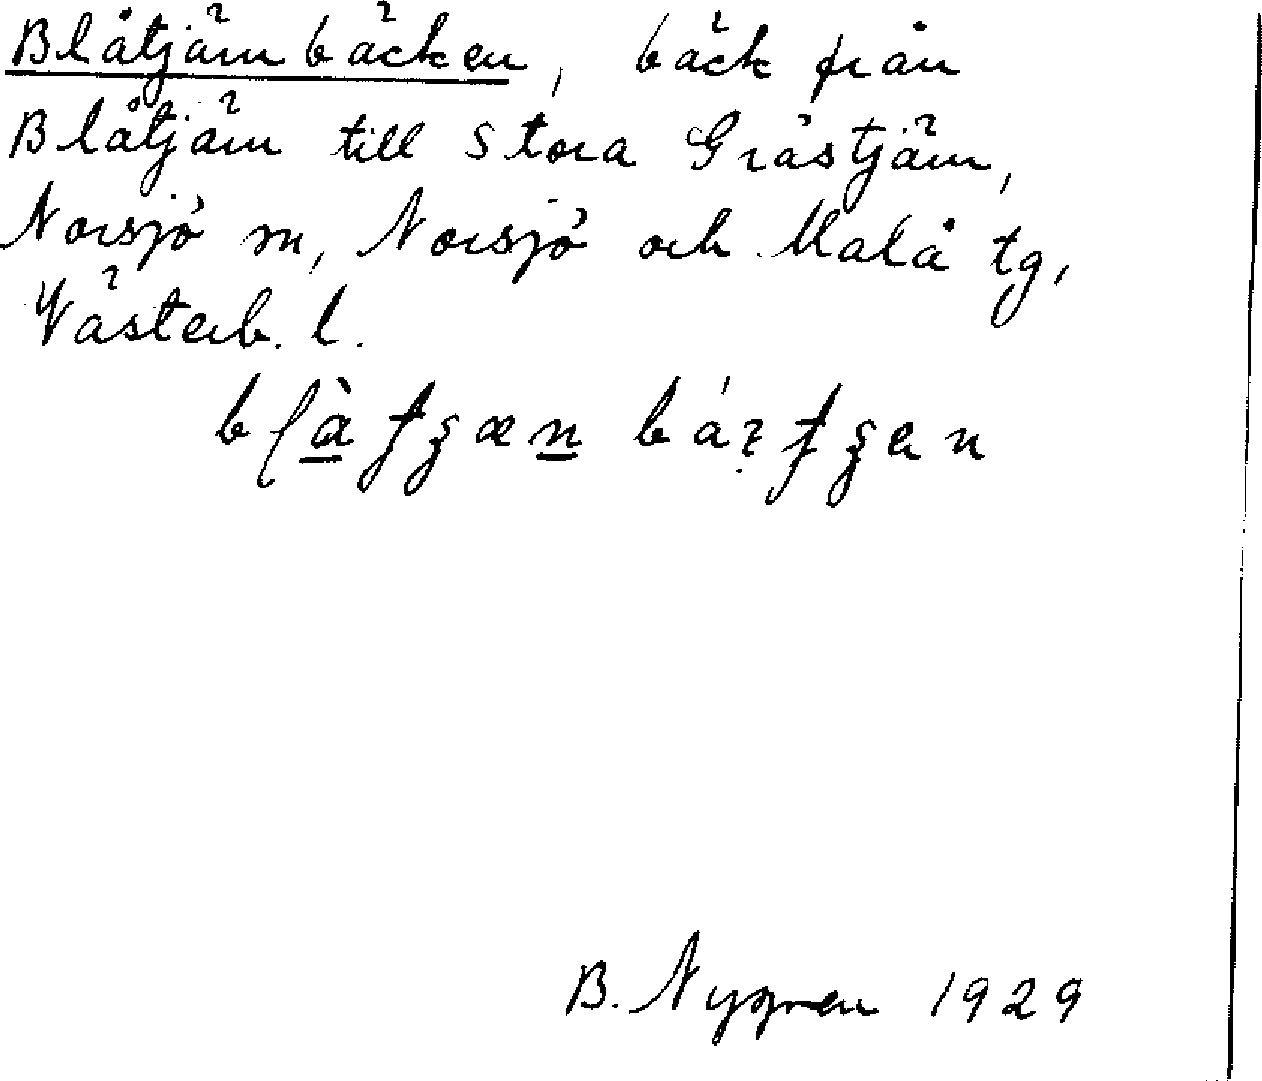 Blåtjärnbäcken, bäck från
Blåtjärn till Stora Grästjärn,
Norsjö sn, Norsjö och Malå tg,
Västerb. l.
B. Nygren 1929